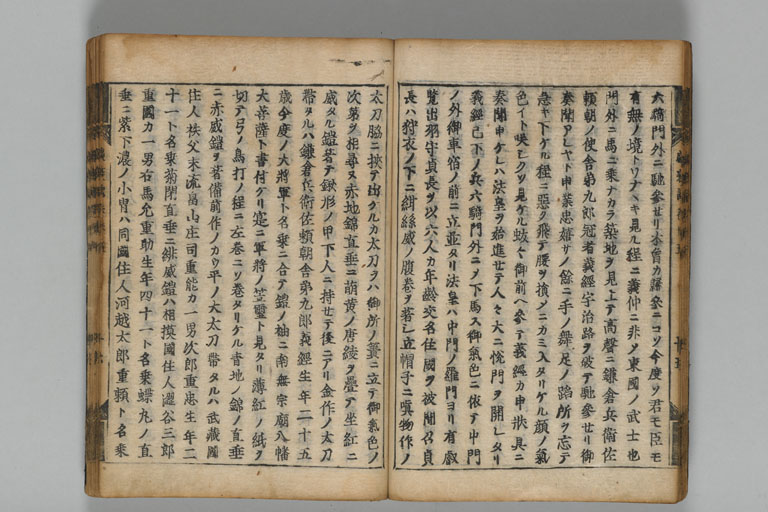 六騎門外ニ馳參セリ木曾カ
今度ソ君モ臣モ
有無ノ境トワナヽキ見ル程ニ義仲ニ非ス東國ノ武士也
門外ニ馬ニ乗ナカラ築地ヲ見上テ高聲ニ鎌倉兵衛佐
頼朝ノ使舎弟九郎冠者義經宇治路ヲ破テ馳參セリ御
奏聞アレヤト申業忠嬉サノ餘ニ手ノ舞足ノ踏所ヲ忘テ
急キ下ケル程ニ悪ク飛テ腰ヲ損シニカミ入タリケル顔ノ氣
色イト咲シクソ見ケル
御前ヘ參テ義經カ申状具ニ
奏聞申ケレハ法皇ヲ始進セテ人々大ニ悦門ヲ開レタリ
義經已下ノ兵六騎門外ニノ下馬ス御氣色ニ依テ中門
ノ外御車宿ノ前ニ立並タリ法皇ハ中門ノ羅門ヨリ有叡
覧出羽守貞長ヲ以六人カ年齢交名住國ヲ被聞召貞
長ハ狩衣ノ下ニ緋絲威ノ腹巻ヲ著シ立帽子ニ
物作ノ
太刀脇ニ挾テ出ケルカ太刀ヲハ御所ノ簀ニ立テ御氣色ノ
次第ヲ相尋ヌ赤地錦直垂ニ萌黄ノ唐綾ヲ疊テ坐紅ニ
威タル鎧著テ鍬形ノ甲下人ニ持セテ後ニアリ金作ノ太刀
帶タルハ鎌倉兵衛佐頼朝舎弟九郎義經生年二十五
歳今度ノ大將軍ト名乗ニ合テ鎧ノ袖ニ南無宗廟八幡
大菩薩ト書付ケリ寔ニ軍將ノ笠璽ト見タリ薄紅ノ紙ヲ
切テ弓ノ鳥打ノ程ニ左巻ニソ巻タリケル青地ノ錦ノ直垂
ニ赤威鎧ヲ著備前作ノカウ平ノ大太刀帶タルハ武藏國
住人秩父末流畠山庄司重能カ一男次郎重忠生年二
十一ト名乗菊閉直垂ニ緋威鎧ハ相摸國住人澁谷三郎
重國カ一男右馬允重助生年四十一ト名乗蝶丸ノ直
垂ニ紫下濃ノ小冑ハ同國住人河越太郎重頼ト名乗